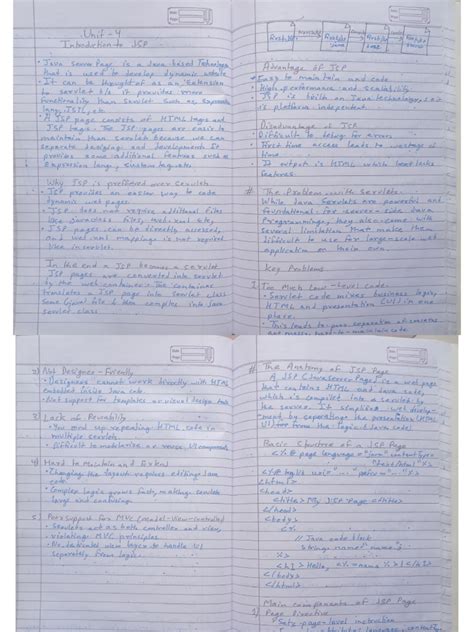 Unit - 4
Introduction to JSP
• Java Server Page is a Java based Technology
that is used to develop dynamic website
• It can be thought of as an extension
to servlet b/c it provides more
functionality than servlet such as, Expression
lang, JSTL, etc.
• A JSP page consists of HTML tags and
JSP tags. The JSP pages are easier to
maintain than servlet because we can
separate designing and development. It
provides some additional features such as
Expression lang, custom tags etc.
Why JSP is preferred over servlets
• JSP provides an easier way to code
dynamic web pages.
• JSP does not require additional files
like java class files, web.xml etc.
• JSP pages can be directly accessed,
and web.xml mapping is not required
like in servlet.
In the end a JSP becomes a servlet
JSP pages are converted into servlet
by the web container. The container
translates a JSP page into servlet class
source file & then compiles into Java
servlet class.
Advantage of JSP
• Easy to maintain and code
• High performance and scalability
• JSP is built on Java technology, so it
is platform independent.
Disadvantage of JSP
• Difficult to debug for errors
• First time access leads to wastage of
time
• It output is HTML which lacks
features.
# The Problem with Servlets
While Java Servlets are powerful and
foundational for server-side Java
Programming, they also come with
several limitation that make them
difficult to use for large-scale web
application on their own.
Key Problems
1. Too Much Low-Level code:
• Servlet code mixes business logic,
HTML and presentation
• This leads to poor separation of concerns
and makes hard to maintain code
2) Not Designer-Friendly
• Designers cannot work directly with HTML
embedded inside Java code
• Not support for templates or visual design tools
3) Lack of Reusability
• You end up repeating HTML code in
multiple servlets.
• Difficult to modularize or reuse UI components
4) Hard to Maintain and Extend
• Changing the layout requires editing Java
code.
• Complex logic grows fast, making servlets
long and confusing.
5) Poor support for MVC (model-view-controller)
• Servlets act as both controller and view,
violating MVC principles
• No dedicated view layer to handle UI
separately from logic.
# The Anatomy of JSP Page
A JSP (JavaServer Pages) is a web page
that contains HTML and Java code,
which is compiled into a servlet by
the server. It simplifies web develop-
ment by separating the presentation (HTML
UI) from the logic (Java code).
Basic Structure of a JSP Page
<%@ page language="java" contentType=
"text/html" %>
<html>
<head>
<title> My JSP Page </title>
</head>
<body>
<%
// Java code block
String name=
%>
<h1> Hello, <%= name %> </h1>
</body>
</html>
Main components of JSP Page
1) Page Directive